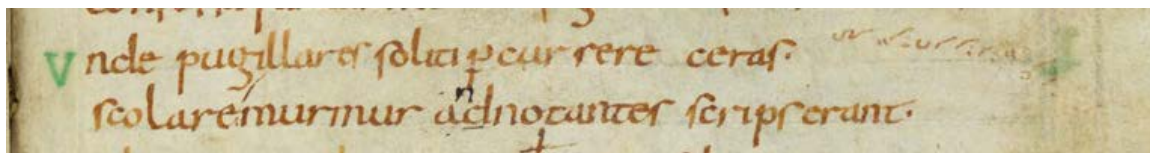 Vnde pugillares soliti ꝑcurrere ceras.
scolare murmur adnotantes scripserant.